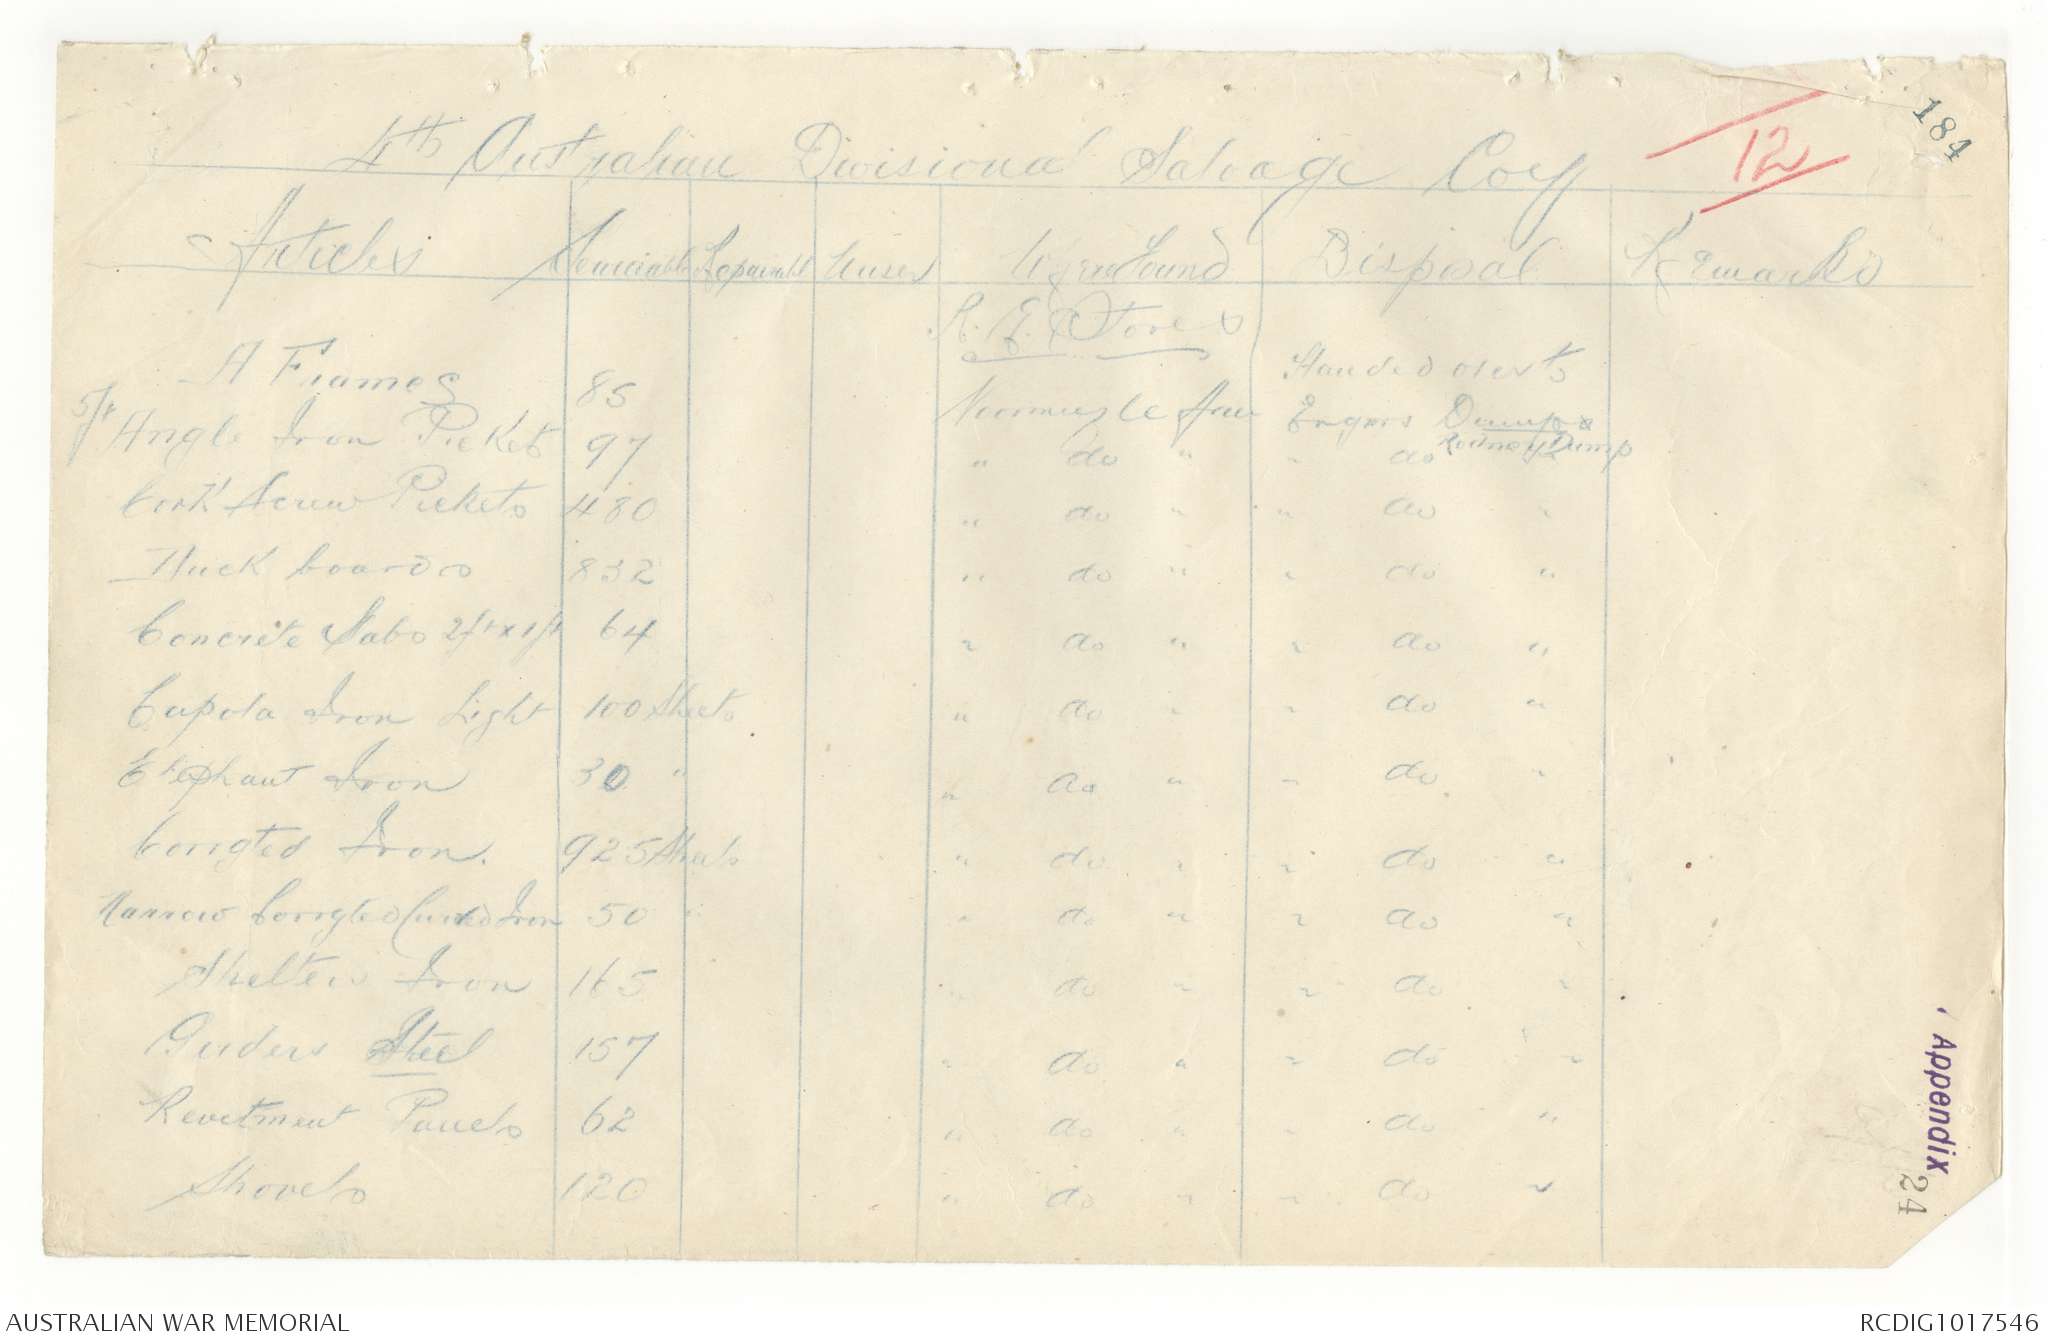 184
12
4th Australian Divisional Salvage Coy
Articles Serviceable Repairable Unser Where Found Disposal Remarks
R. E. Stores
A Frames 85 Noormezele Area Handed over to Engrs Dumps
5ft Angle Iron Pickets 97 " do " " do Rodney Dump
Cork Screw Pickets 480 " do " " do "
Duck boards 832 " do " " do "
Concrete Slabs 2ft x 1ft 64 " do " " do "
Cupola Iron Light 100 Sheets " do " " do "
Elephant Iron 30 " " do " " do "
Corrgted Iron. 925 Sheets " do " " do "
Narrow Corrgted Curved Iron 50 " " do " " do "
Shelters Iron 165 " do " " do "
Girders Steel 157 " do " " do "
Revetment Panels 62 " do " " do "
Shovels 120 " do " " do "
Appendix 24
AUSTRALIAN WAR MEMORIAL RCDIG1017546